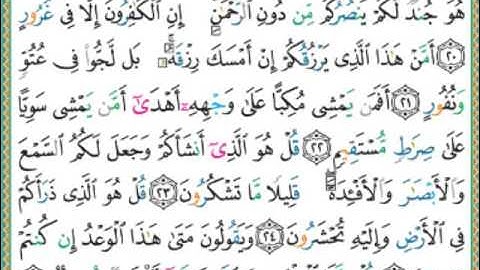 هُوَ جُندٌ لَّكُمْ يَنصُرُكُم مِّن دُونِ ٱلرَّحْمَٰنِ ۚ إِنِ ٱلْكَٰفِرُونَ إِلَّا فِى غُرُورٍ
﴿٢٠﴾ أَمَّنْ هَٰذَا ٱلَّذِى يَرْزُقُكُمْ إِنْ أَمْسَكَ رِزْقَهُۥ ۚ بَل لَّجُّوا۟ فِى عُتُوٍّ
وَنُفُورٍ ﴿٢١﴾ أَفَمَن يَمْشِى مُكِبًّا عَلَىٰ وَجْهِهِۦٓ أَهْدَىٰٓ أَمَّن يَمْشِى سَوِيًّا
عَلَىٰ صِرَٰطٍ مُّسْتَقِيمٍ ﴿٢٢﴾ قُلْ هُوَ ٱلَّذِىٓ أَنشَأَكُمْ وَجَعَلَ لَكُمُ ٱلسَّمْعَ
وَٱلْأَبْصَٰرَ وَٱلْأَفْـِٔدَةَ ۖ قَلِيلًا مَّا تَشْكُرُونَ ﴿٢٣﴾ قُلْ هُوَ ٱلَّذِى ذَرَأَكُمْ
فِى ٱلْأَرْضِ وَإِلَيْهِ تُحْشَرُونَ ﴿٢٤﴾ وَيَقُولُونَ مَتَىٰ هَٰذَا ٱلْوَعْدُ إِن كُنتُمْ